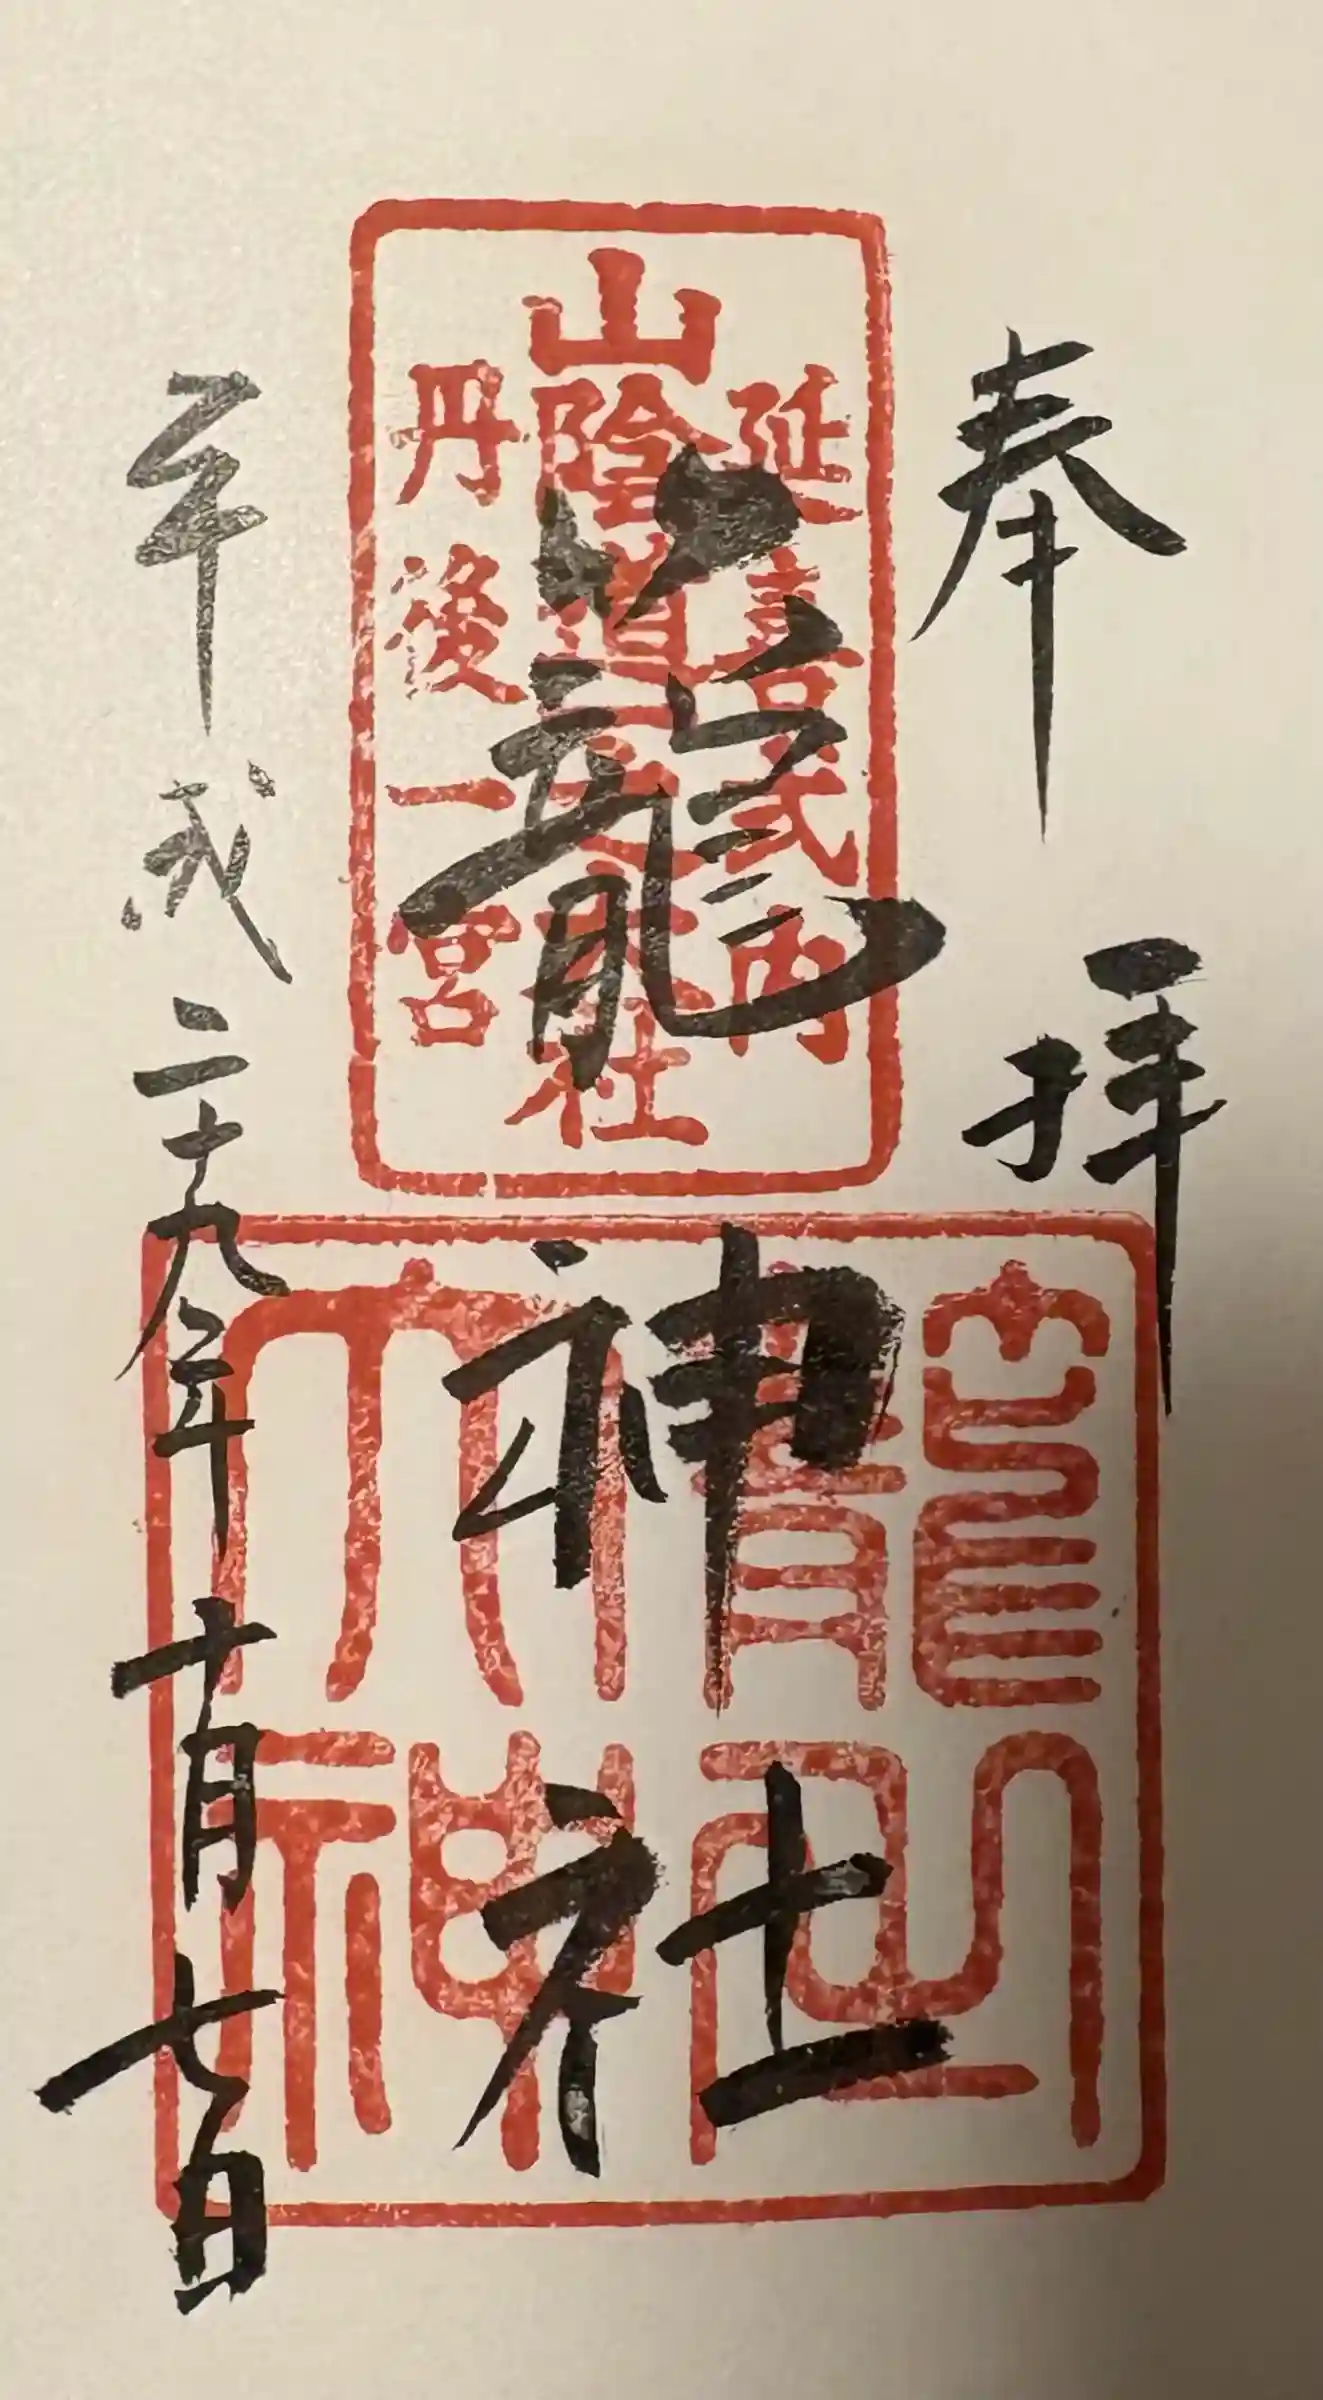 奉拝
延喜式内
山陰道一之大社
丹後一宮
籠神社
平成二十九年十月七日